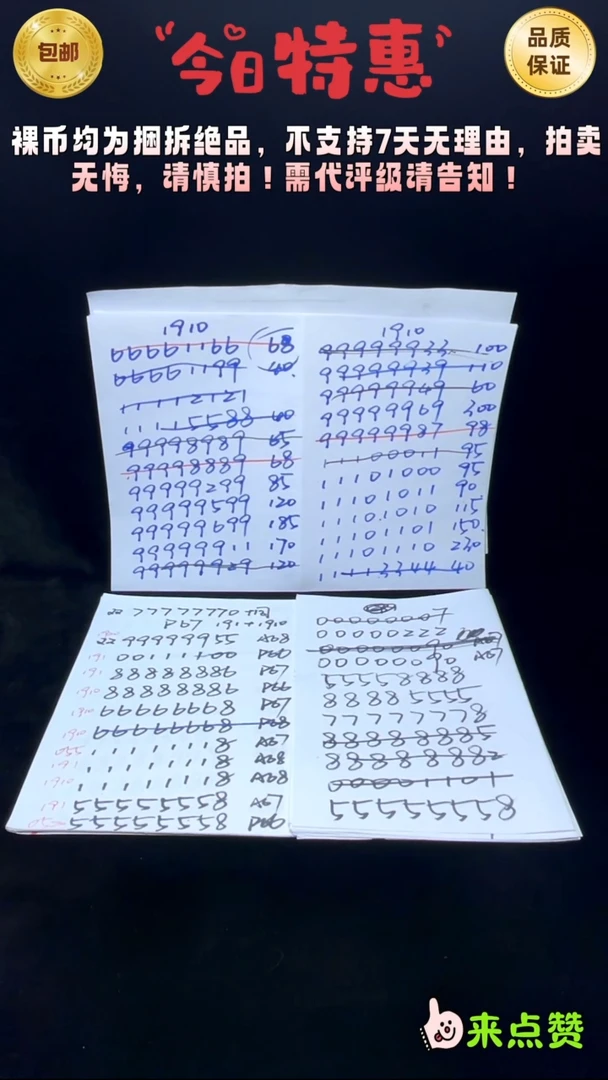 包邮
今日特惠
品质
保证
裸币均为捆拆绝品，不支持7天无理由，拍卖
无悔，请慎拍！需代评级请告知！
1910
66661166 68
66661199 40
11112121
11115588 40
99998989 65
99998889 68
99999299 85
99999599 120
99999699 185
99999911 170
99999929 120
1910
99999933 100
99999939 110
99999949 60
99999969 300
99999987 98
11100011 95
11101000 95
11101011 90
11101010 115
11101101 150
11101110 230
11113344 40
77777770
P67 191+1910
99999955 A68
191 00111100 P66
191 88888886 P67
1910 88888886 P66
1910 66666668 P67
1910 66666668 P68
11111118 A67
191 11111118 A68
1910 11111118 A68
191 55555558 A67
55555558 P66
00000007
00000222
00000090 A67
55558888
88885555
77777778
88888885
88888882
00001101
55555558
来点赞